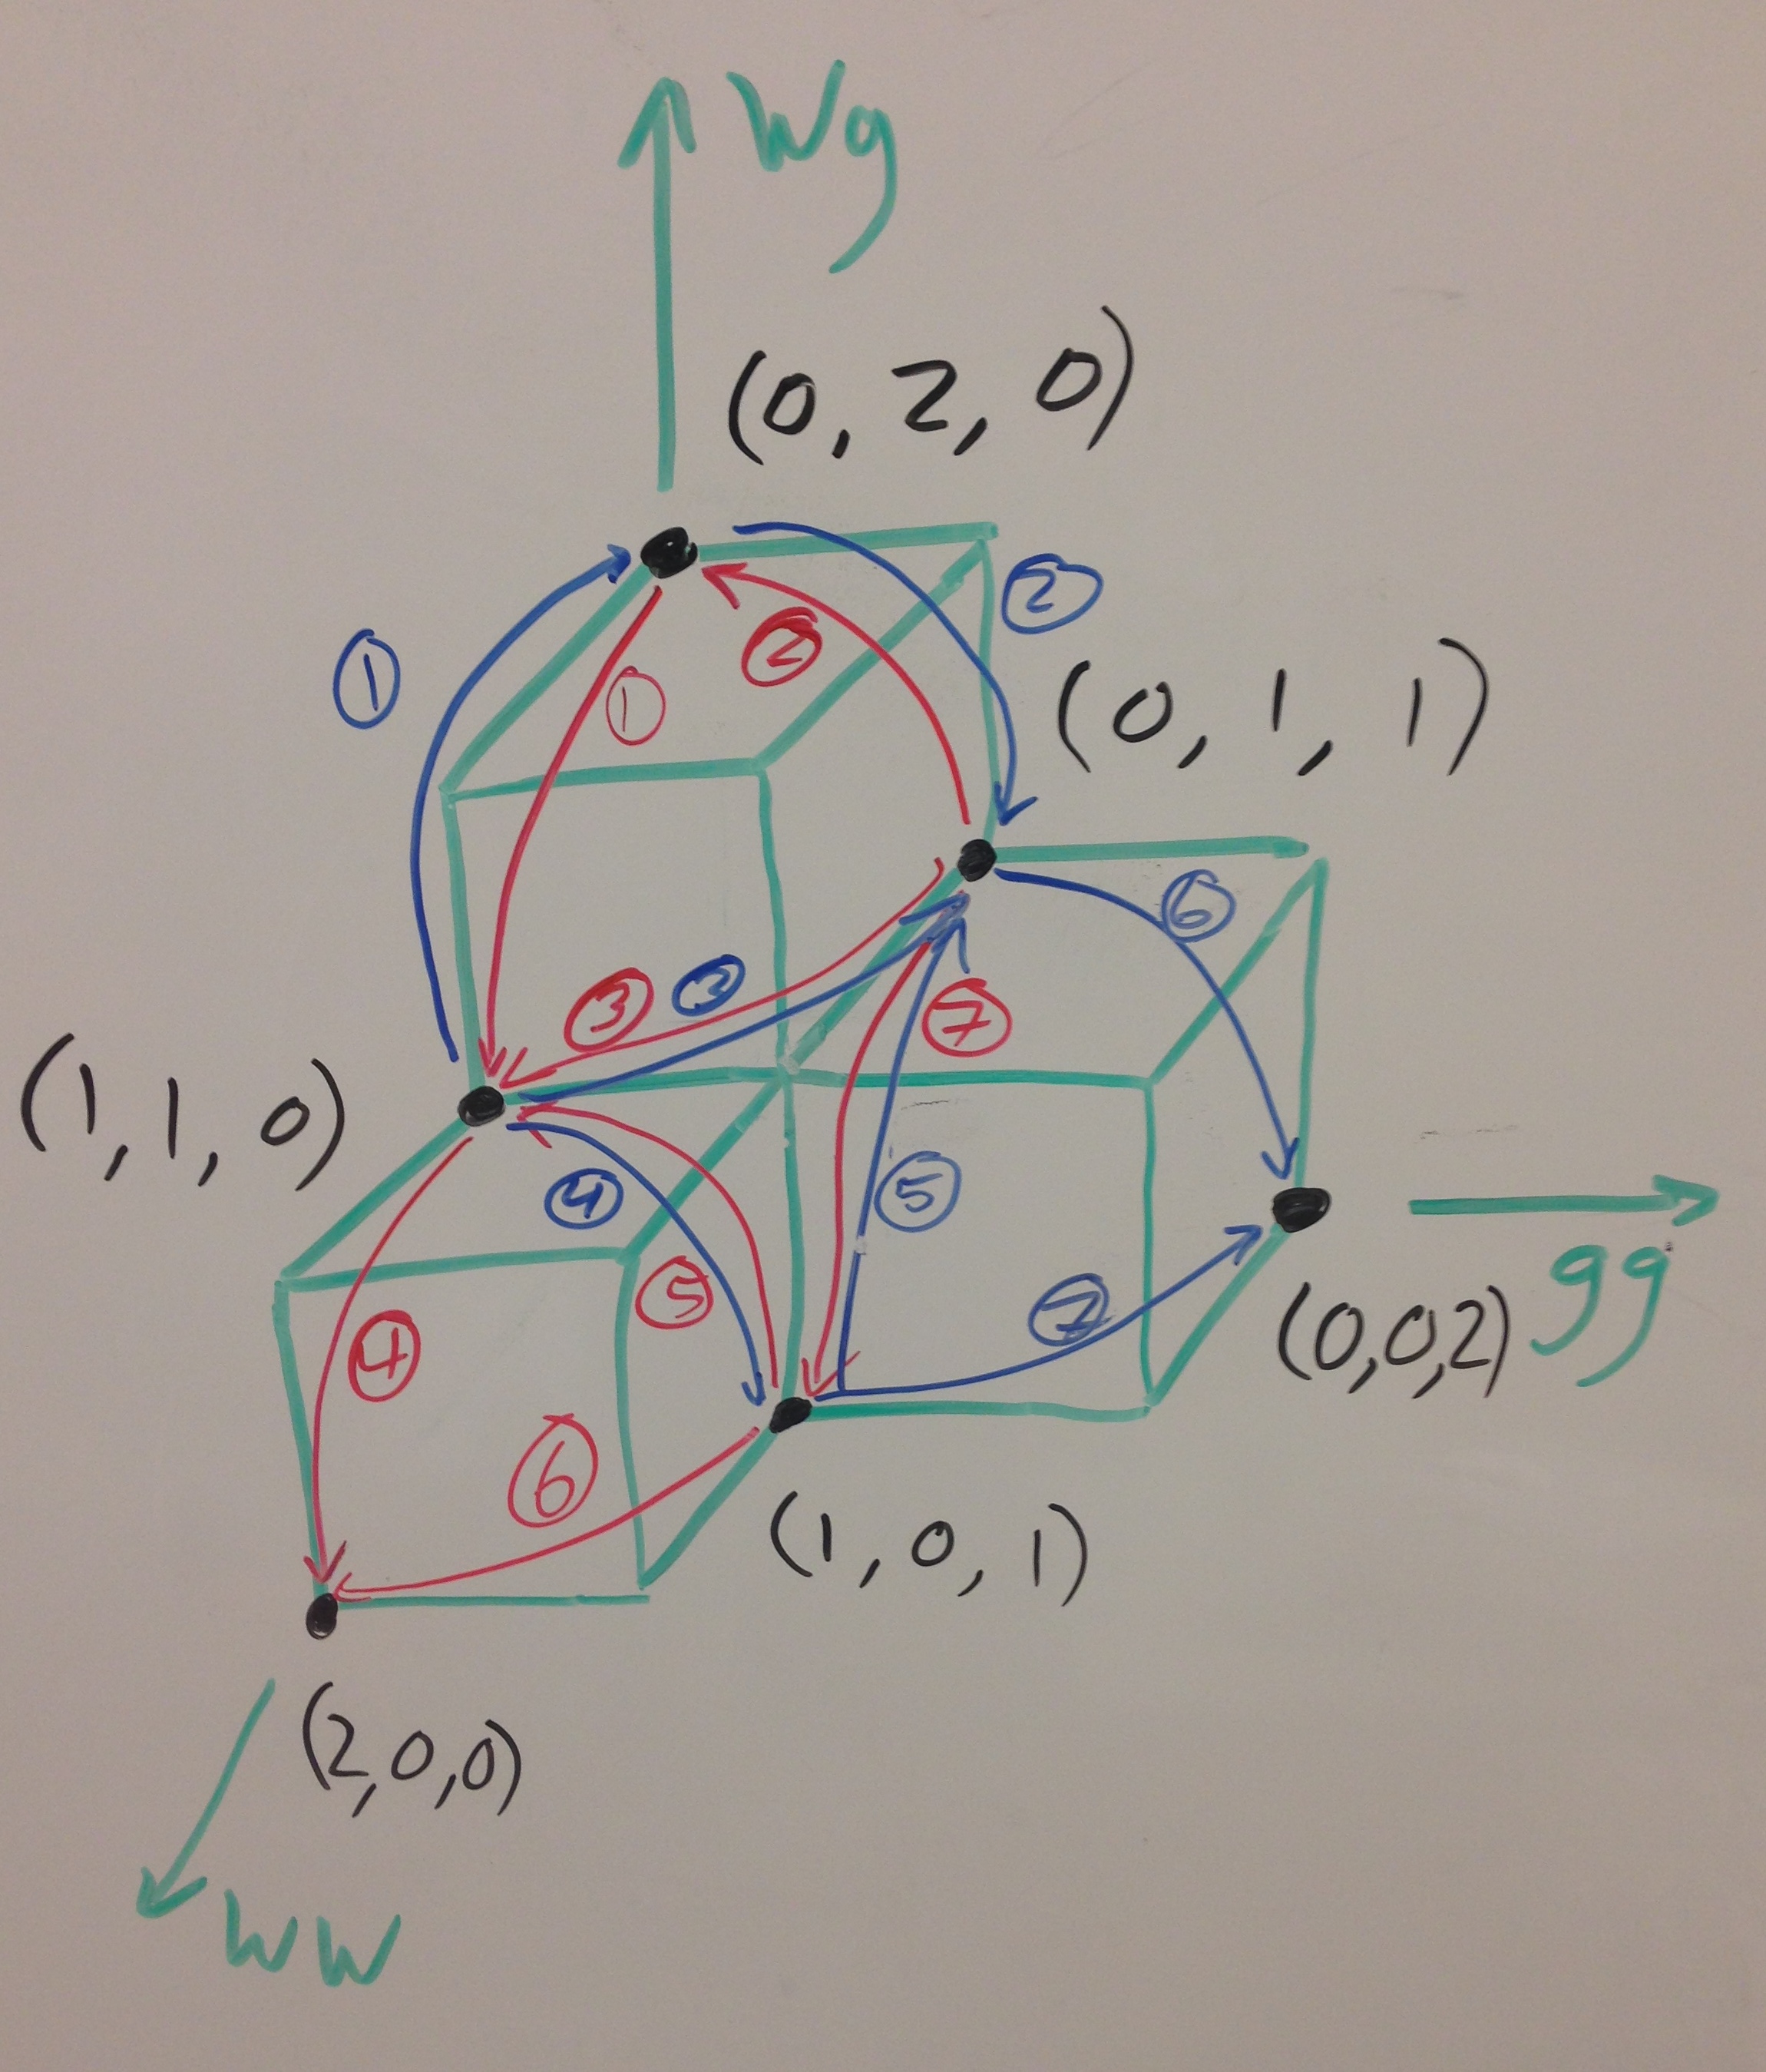 Wg
(0, 2, 0)
2
1
2
1
(0, 1, 1)
6
3
3
7
(1, 1, 0)
4
5
5
7
gg
(0,0,2)
4
6
(1, 0, 1)
(2,0,0)
WW